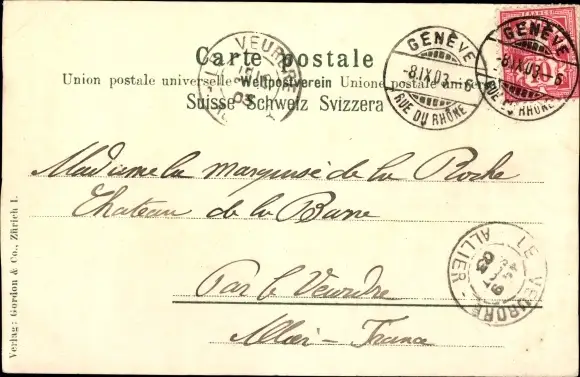 Carte postale
Union postale universelle Weltpostverein Unione postale univers
Suisse Schweiz Svizzera
GENÈVE
-8.IX.03.-6
RUE DU RHÔNE
GENÈVE
-8.IX.03.-6
RUE DU RHÔNE
VEURDRE
03
Madame la marquise de la Roche
Chateau de la Barre
Par le Veurdre
Allier - France
LE VEURDRE
03
ALLIER
Verlag: Gordon & Co., Zürich I.